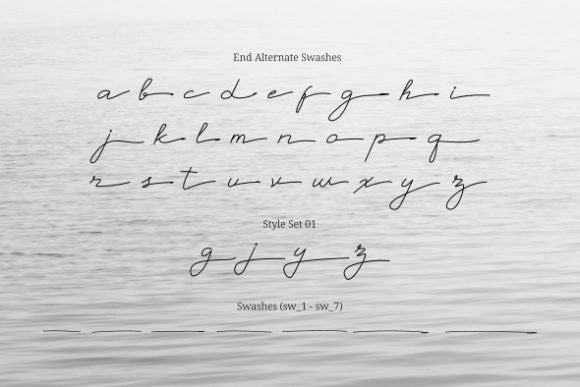 End Alternate Swashes
a b c d e f g h i
j k l m n o p q
r s t u v w x y z
Style Set 01
g j y z
Swashes (sw_1 - sw_7)